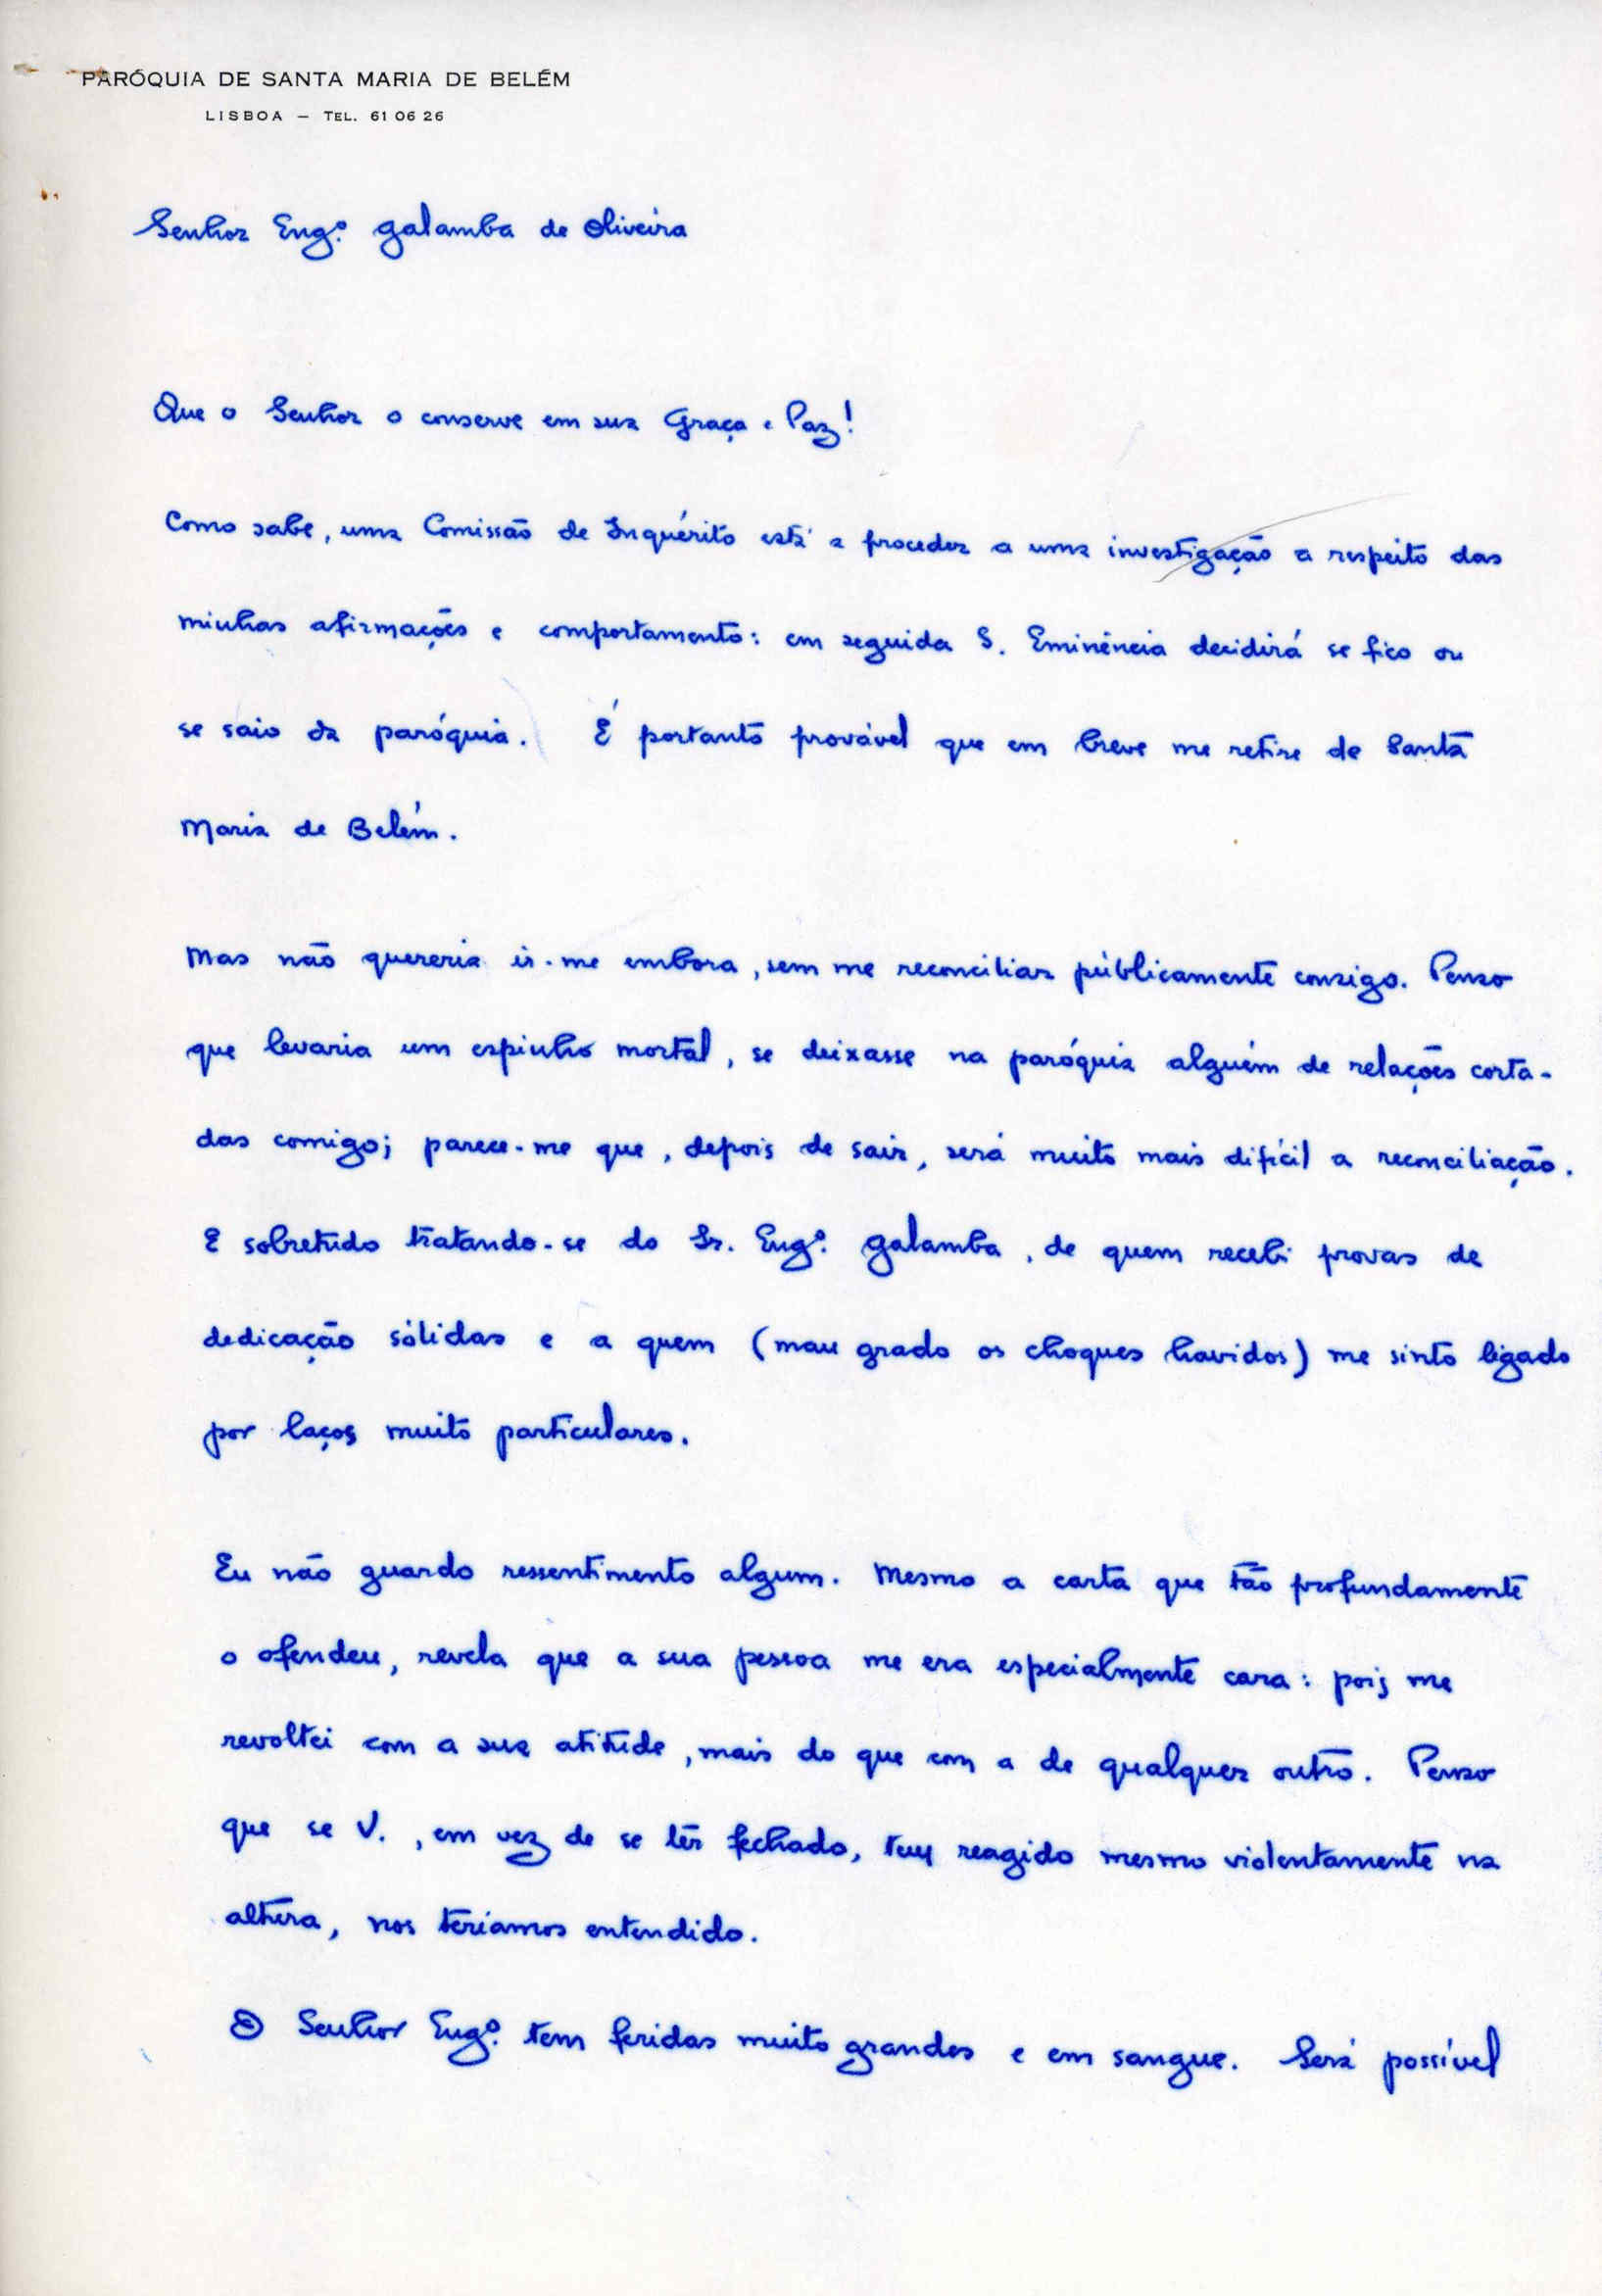 PARÓQUIA DE SANTA MARIA DE BELÉM
LISBOA — TEL. 61 06 26
Senhor Engº. Galamba de Oliveira
Que o Senhor o conserve em sua Graça e Paz!
Como sabe, uma Comissão de Inquérito está a proceder a uma investigação a respeito das
minhas afirmações e comportamento: em seguida S. Eminência decidirá se fico ou
se saio da paróquia. É portanto provável que em breve me retire de Santa
Maria de Belém.
Mas não quereria ir-me embora, sem me reconciliar públicamente consigo. Penso
que levaria um espinho mortal, se deixasse na paróquia alguém de relações corta-
das comigo; parece-me que, depois de sair, será muito mais difícil a reconciliação.
E sobretudo tratando-se do Sr. Engº. Galamba, de quem recebi provas de
dedicação sólidas e a quem (mau grado os choques havidos) me sinto ligado
por laços muito particulares.
Eu não guardo ressentimento algum. Mesmo a carta que tão profundamente
o ofendeu, revela que a sua pessoa me era especialmente cara: pois me
revoltei com a sua atitude, mais do que com a de qualquer outro. Penso
que se V., em vez de se ter fechado, tem reagido mesmo violentamente na
altura, nos teríamos entendido.
O Senhor Engº. tem feridas muito grandes e em sangue. Será possível